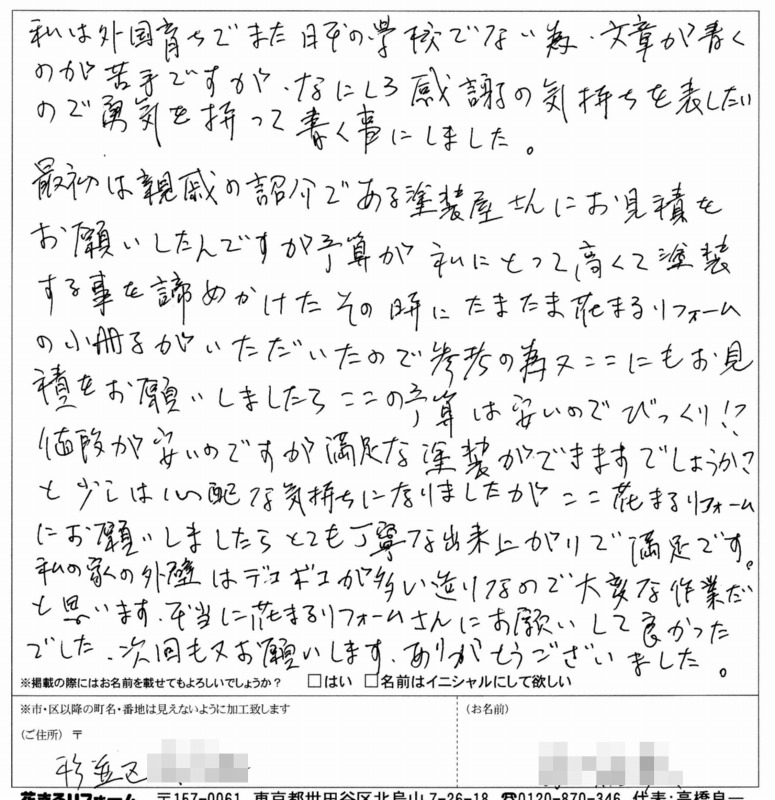 私は外国育ちでまた日本の学校でない為、文章が書く
のが苦手ですが、なにしろ感謝の気持ちを表したい
ので勇気を持って書く事にしました。
最初は親戚の紹介である塗装屋さんにお見積を
お願いしたんですが予算が私にとって高くて塗装
する事を諦めかけたその時にたまたま花まるリフォーム
の小冊子がいただいたので参考の為又ここにもお見
積をお願いしましたらここの予算は安いのでびっくり!?
値段が安いのですが満足な塗装ができますでしょうか?
と少しは心配な気持ちになりましたがここ花まるリフォーム
にお願いしましたらとても丁寧な出来上がりで満足です。
私の家の外壁はデコボコが多い造りなので大変な作業だ
と思います、本当に花まるリフォームさんにお願いして良かった
でした、次回も又お願いします、ありがとうございました。
※掲載の際にはお名前を載せてもよろしいでしょうか? □はい □名前はイニシャルにして欲しい
※市・区以降の町名・番地は見えないように加工致します
(お名前)
(ご住所) 〒
杉並区
花まるリフォーム 〒157-0061 東京都世田谷区北烏山7-26-18 ☎0120-870-346 代表・高橋良一